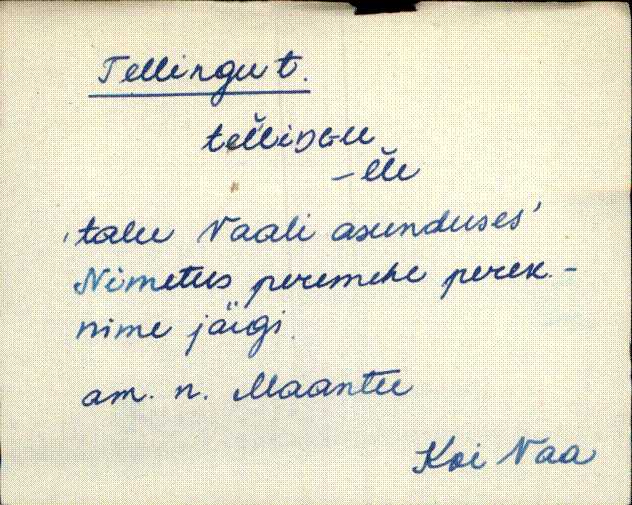 Tellingu t.
tel̆l̆iŋɢu
– el̆le
'talu Naali asunduses'
Nimetus peremehe perek.-
nime järgi.
am. n. Maantee
Koi Naa